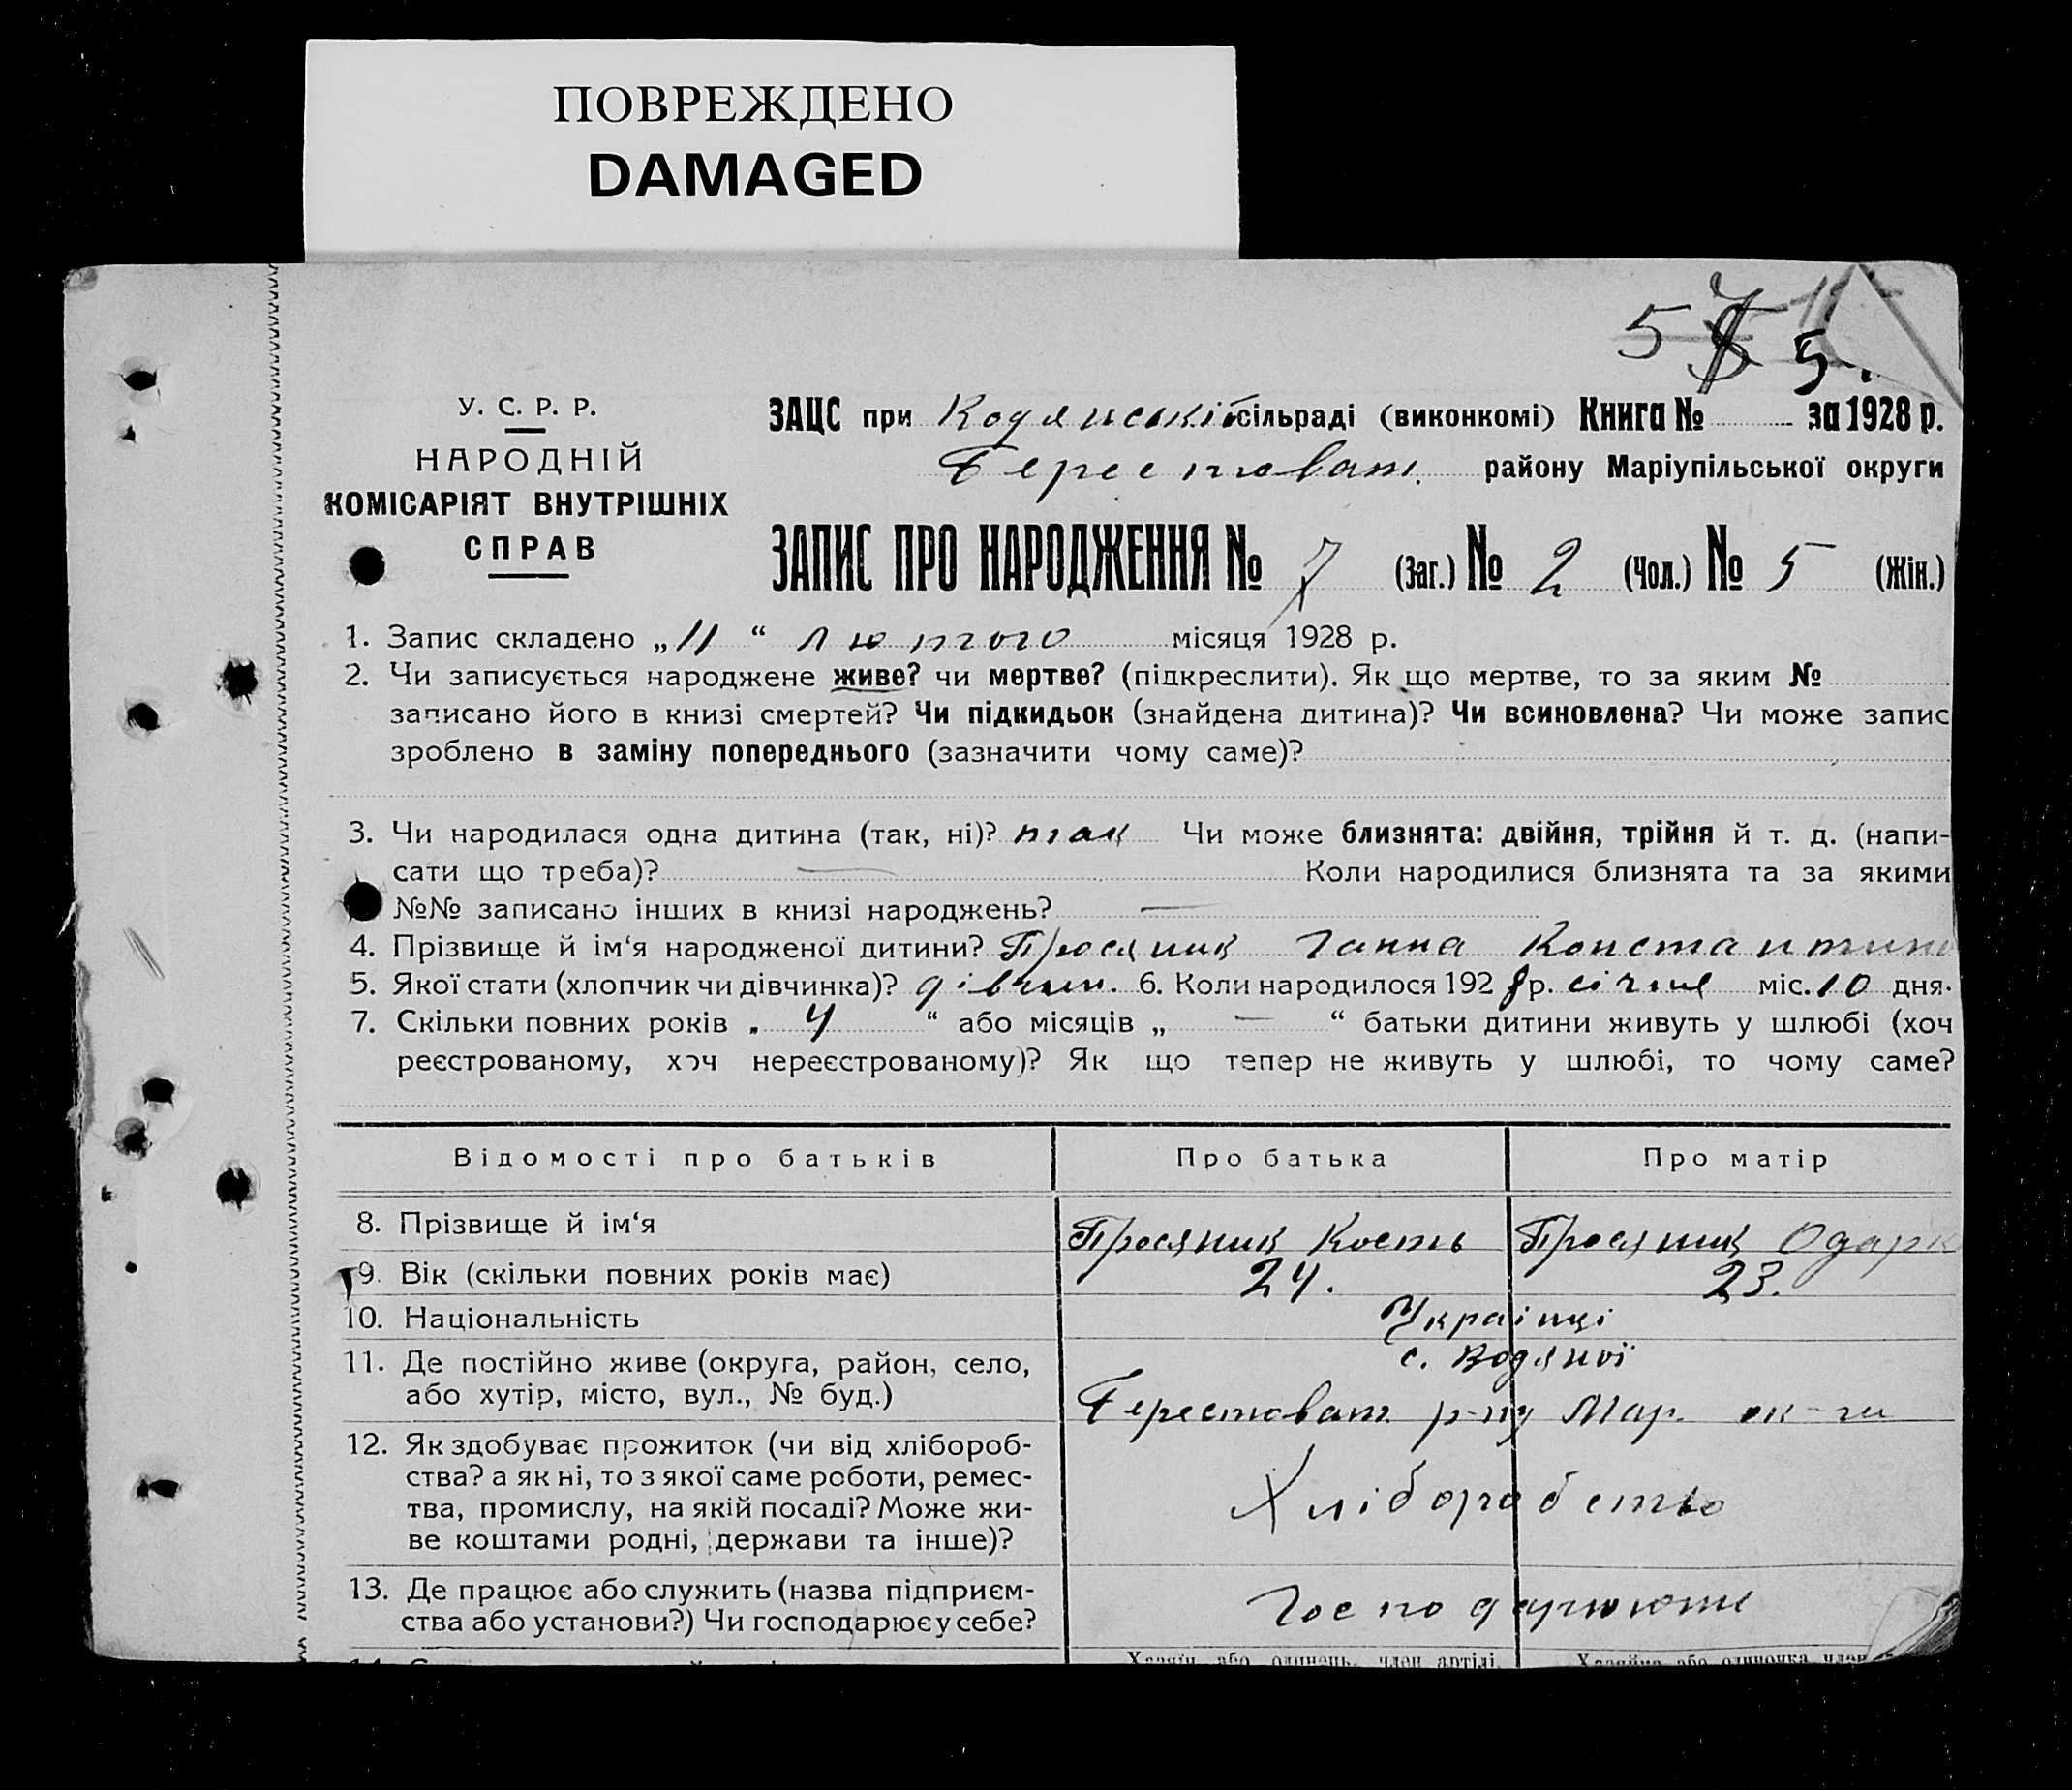 ПОВРЕЖДЕНО
DAMAGED
5 5
У. С. Р. Р.
НАРОДНІЙ
КОМІСАРІЯТ ВНУТРІШНІХ
СПРАВ
ЗАЦС при Водянській сільраді (виконкомі) Книга № за 1928 р.
Берестоват. району Маріупільської округи
ЗАПИС ПРО НАРОДЖЕННЯ № 7 (Заг.) № 2 (Чол.) № 5 (Жін.)
1. Запис складено „11 “ лютого місяця 1928 р.
2. Чи записується народжене живе? чи мертве? (підкреслити). Як що мертве, то за яким №
записано його в книзі смертей? Чи підкидьок (знайдена дитина)? Чи всиновлена? Чи може запис
зроблено в заміну попереднього (зазначити чому саме)?
3. Чи народилася одна дитина (так, ні)? так Чи може близнята: двійня, трійня й т. д. (напи-
сати що треба)? — Коли народилися близнята та за якими
№№ записано інших в книзі народжень? —
4. Прізвище й ім‘я народженої дитини? Просяник Ганна Константино
5. Якої стати (хлопчик чи дівчинка)? дівчин. 6. Коли народилося 192 8 р. січня міс. 10 дня.
7. Скільки повних років „ 4 “ або місяців „ — “ батьки дитини живуть у шлюбі (хоч
реєстрованому, хоч нереєстрованому)? Як що тепер не живуть у шлюбі, то чому саме?
Відомості про батьків Про батька Про матір
8. Прізвище й ім‘я Просяник Кость Просяник Одарк
9. Вік (скільки повних років має) 24. 23.
10. Національність Українці
11. Де постійно живе (округа, район, село, с. Водяної
або хутір, місто, вул., № буд.) Берестоват. р-ну Мар. ок-ги
12. Як здобуває прожиток (чи від хлібороб-
ства? а як ні, то з якої саме роботи, ремес- Хліборобство
тва, промислу, на якій посаді? Може жи-
ве коштами родні, держави та інше)?
13. Де працює або служить (назва підприєм- Господарюють
ства або установи?) Чи господарює у себе?
Хазяїн або одинець, член артілі, Хазяйка або одиночка член